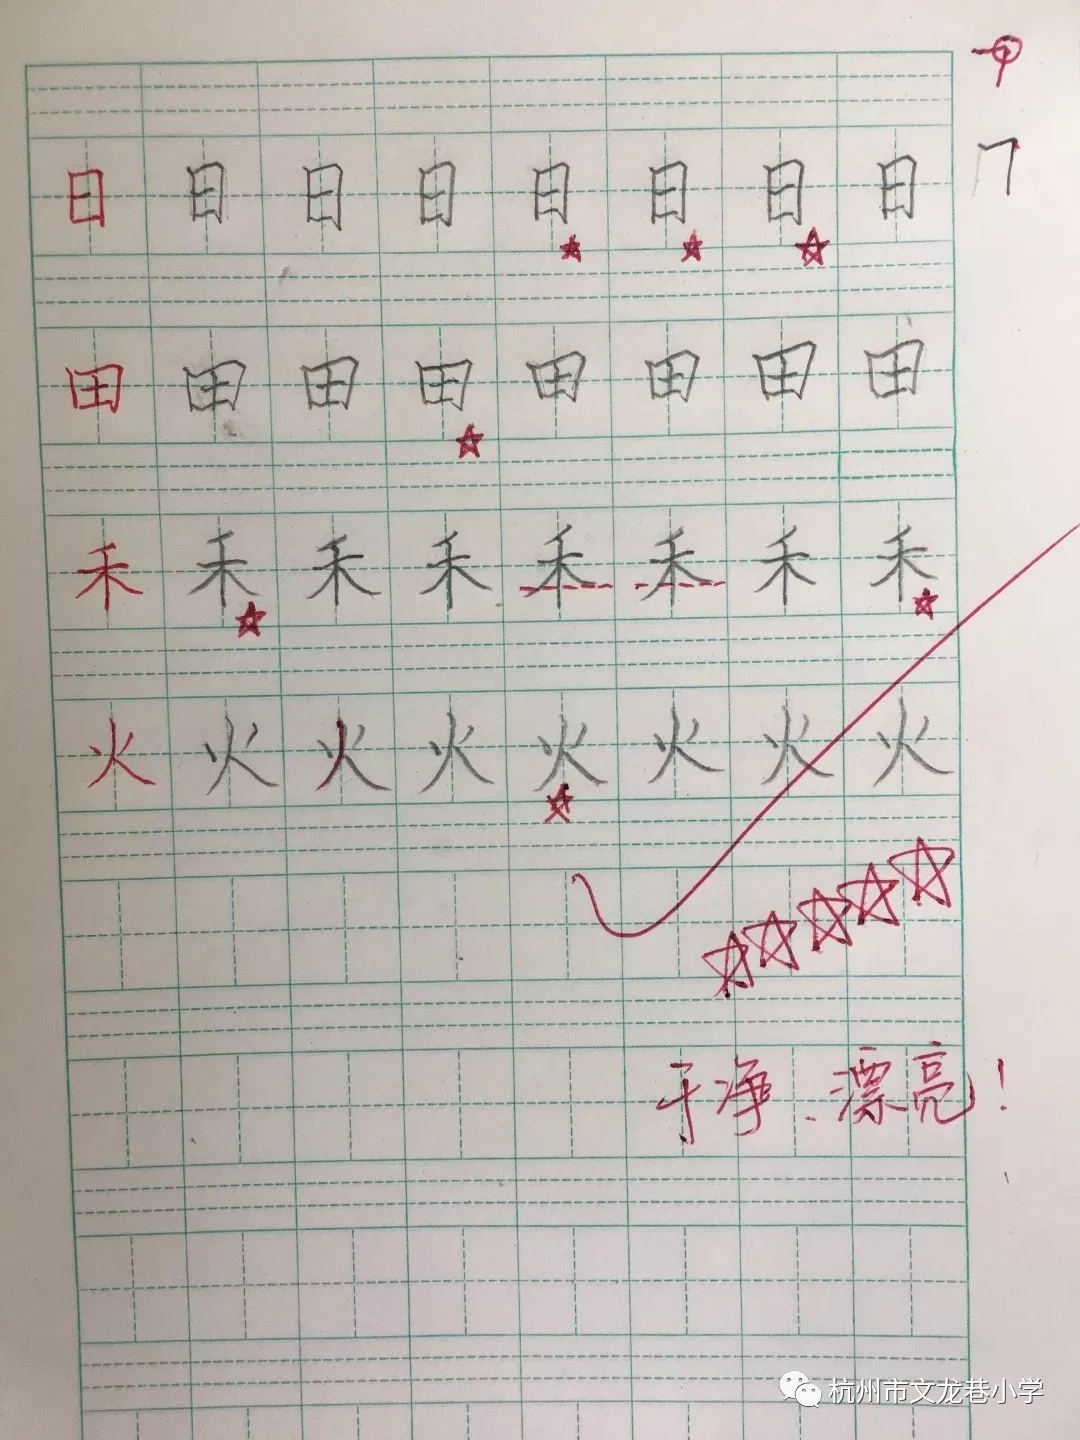 日 日 日 日 日 日 日 日
田 田 田 田 田 田 田 田
禾 禾 禾 禾 禾 禾 禾 禾
火 火 火 火 火 火 火 火
干净、漂亮!
杭州市文龙巷小学